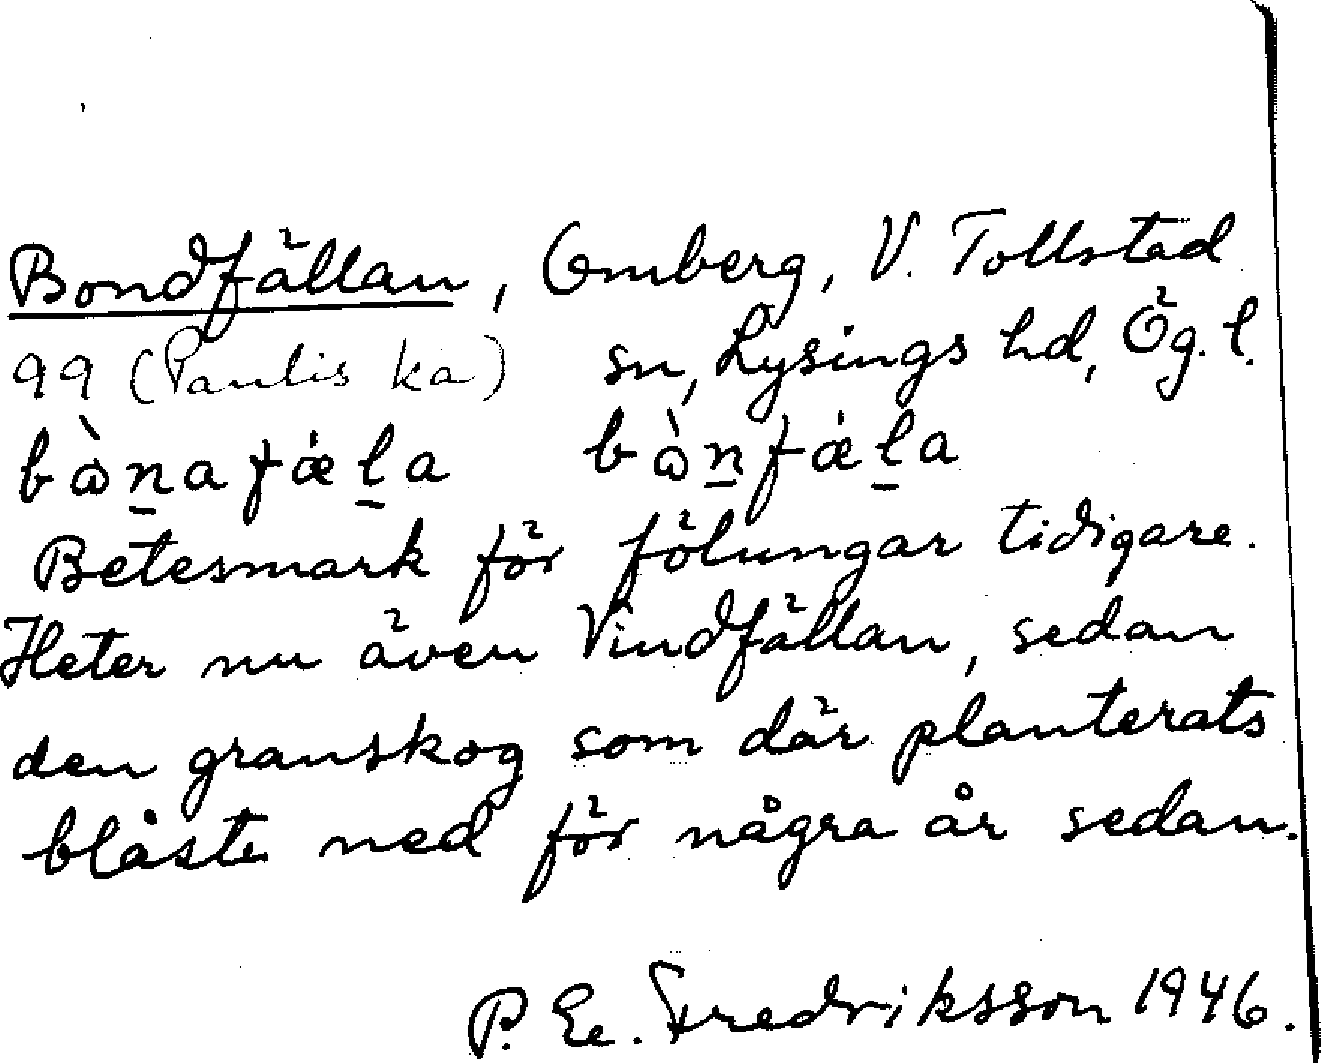 Bondfällan, Omberg, V. Tollstad
99 (Paulis ka) sn, Lysings hd, Ög. l.
bὼn̠afǽl̠a bὼn̠fǽl̠a
Betesmark för fölungar tidigare.
Heter nu även Vindfällan, sedan
den granskog som där planterats
blåste ned för några år sedan.
P. Ee. Fredriksson 1946.